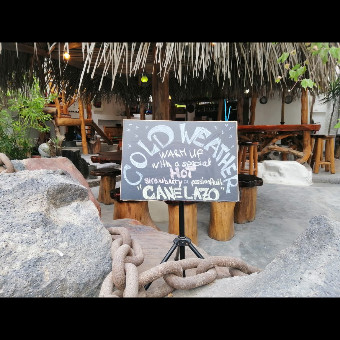 COLD WEATHER
WARM UP
with a special
HOT
strawberry or passionfruit
"CANELAZO"